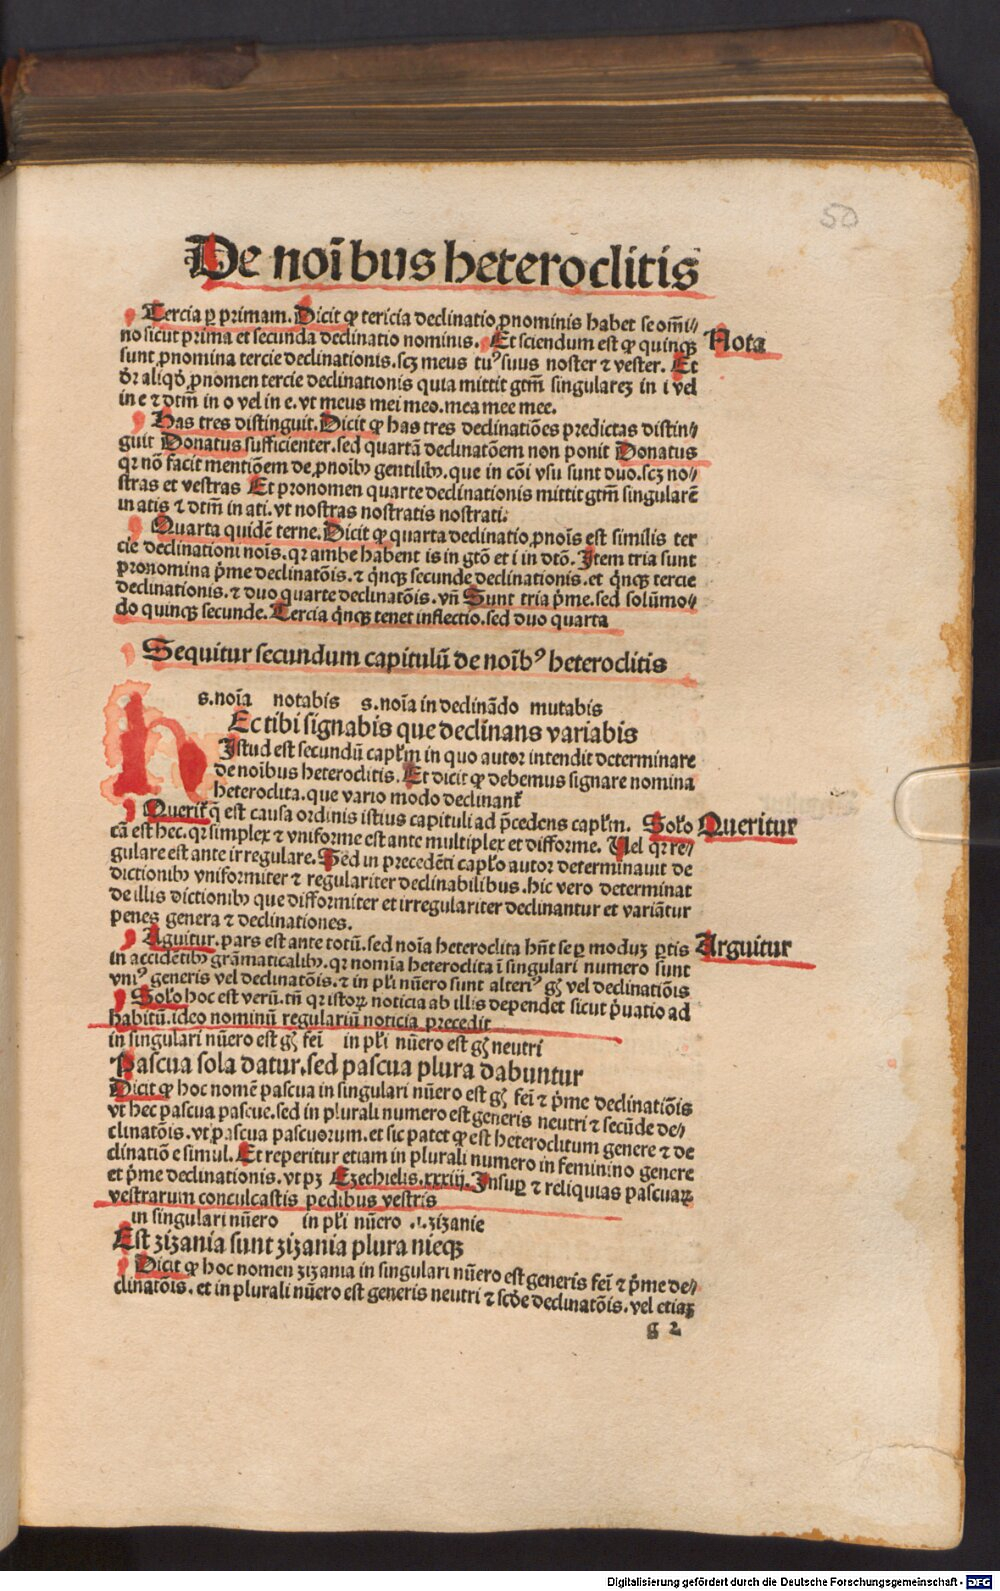 50
De noībus heteroclitis
Tercia ꝑ primam. Dicit ꝙ tericia declinatio ꝓnominis habet se om̄i⸗
no sicut prima et secunda declinatio nominis. Et sciendum est ꝙ quinqꝫ
Nota
sunt ꝓnomina tercie declinationis. scꝫ meus tuꝰ suus noster ⁊ vester. Et
dr̄ aliqd̄ ꝓnomen tercie declinationis quia mittit gtm̄ singulareꝫ in i vel
in e ⁊ dtm̄ in o vel in e. vt meus mei meo. mea mee mee.
Has tres distinguit. Dicit ꝙ has tres declinatiōes predictas distin⸗
guit Donatus sufficienter. sed quartā declinatōem non ponit Donatus
qr nō facit mentiōem de ꝓnoībꝰ gentilibꝰ. que in cōi vsu sunt duo. scꝫ no⸗
stras et vestras Et pronomen quarte declinationis mittit gtm̄ singularē
in atis ⁊ dtm̄ in ati. vt nostras nostratis nostrati.
Quarta quidē terne. Dicit ꝙ quarta declinatio ꝓnoīs est similis ter
cie declinationi noīs. qr ambe habent is in gtō et i in dtō. Item tria sunt
pronomina p̄me declinatōis. ⁊ q̄nqꝫ secunde declinationis. et q̄nqꝫ tercie
declinationis. ⁊ duo quarte declinatōis. vn̄ Sunt tria p̄me. sed solūmo⸗
do quinqꝫ secunde. Tercia q̄nqꝫ tenet inflectio. sed duo quarta
Sequitur secundum capitulū de noībꝰ heteroclitis
s. noīa notabis s. noīa in declināndo mutabis
hEc tibi signabis que declinans variabis
Istud est secundū capl̄m in quo autor intendit determinare
de noībus heteroclitis. Et dicit ꝙ debemus signare nomina
heteroclita. que vario modo declinant̄
Querit̄ q̄ est causa ordinis istius capituli ad p̄cedens capl̄m. Solo
Queritur
cā est hec. qr simplex ⁊ vniforme est ante multiplex et difforme. Vel qr re⸗
gulare est ante irregulare. Sed in precedēti caplo autor determinauit de
dictionibꝰ vniformiter ⁊ regulariter declinabilibus. hic vero determinat
de illis dictionibꝰ que difformiter et irregulariter declinantur et variātur
penes genera ⁊ declinationes.
Aguitur. pars est ante totū. sed noīa heteroclita hn̄t se ꝑ moduꝫ ꝑtis
Arguitur
in accidētibꝰ grāmaticalibꝰ. qr nomīa heteroclita ī singulari numero sunt
vniꝰ generis vel declinatōis. ⁊ in pl̄i nūero sunt alteriꝰ gn̄ vel declinatiōis
Solo hoc est verū. tn̄ qr istoꝝ noticia ab illis dependet sicut p̄uatio ad
habitū. ideo nominū regulariū noticia precedit
in singulari nūero est gn̄ fei in pl̄i nūero est gn̄ neutri
Pascua sola datur. sed pascua plura dabuntur
Dicit ꝙ hoc nomē pascua in singulari nūero est gn̄ fei ⁊ p̄me declinatiōis
vt hec pascua pascue. sed in plurali numero est generis neutri ⁊ secūde de⸗
clinatōis. vt pascua pascuorum. et sic patet ꝙ est heteroclitum genere ⁊ de
clinatiōe simul. Et reperitur etiam in plurali numero in feminino genere
et p̄me declinationis. vt pꝫ Ezechielis. xxxiij. Insuꝑ ⁊ reliquias pascuaꝝ
vestrarum conculcastis pedibus vestris
in singulari nūero in pl̄i nūero .i. zizanie
Est zizania sunt zizania plura nieqꝫ
Dicit ꝙ hoc nomen zizania in singulari nūero est generis fei ⁊ p̄me de⸗
clinatōis. et in plurali nūero est generis neutri ⁊ scd̄e declinatōis. vel etiaꝫ
g 2
Digitalisierung gefördert durch die Deutsche Forschungsgemeinschaft - DFG